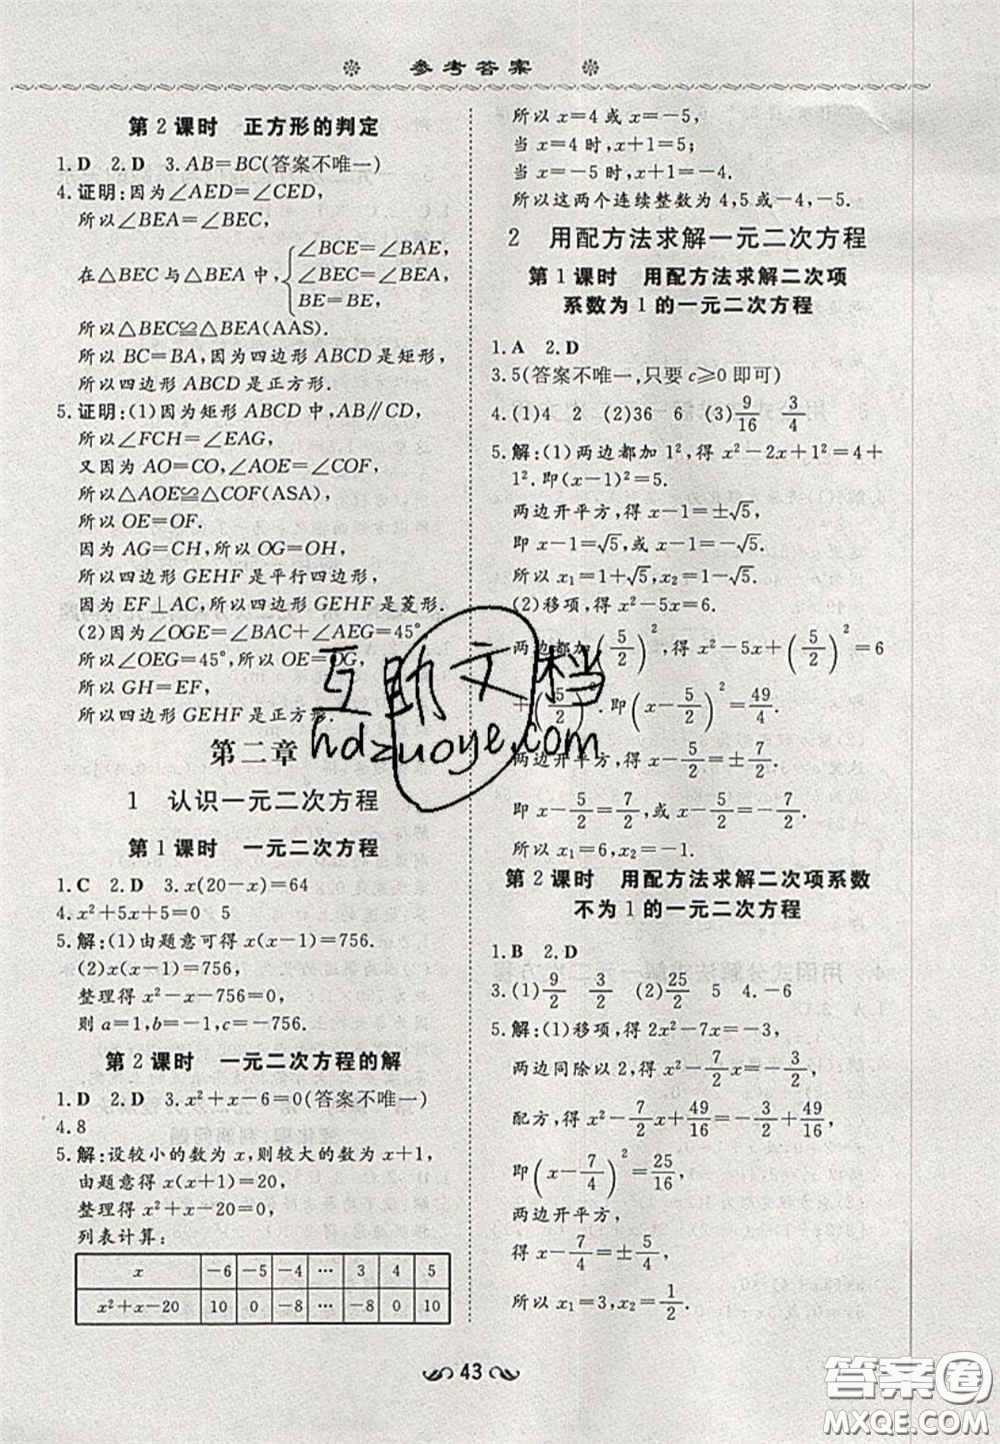 参考答案
第2课时 正方形的判定
1.D 2.D 3.AB=BC(答案不唯一)
4.证明:因为∠AED=∠CED,
所以∠BEA=∠BEC,
在△BEC与△BEA中,
∠BCE=∠BAE,
∠BEC=∠BEA,
BE=BE,
所以△BEC≌△BEA(AAS).
所以BC=BA,因为四边形ABCD是矩形,
所以四边形ABCD是正方形.
5.证明:(1)因为矩形ABCD中,AB∥CD,
所以∠FCH=∠EAG,
又因为AO=CO,∠AOE=∠COF,
所以△AOE≌△COF(ASA).
所以OE=OF.
因为AG=CH,所以OG=OH,
所以四边形GEHF是平行四边形.
因为EF⊥AC,所以四边形GEHF是菱形.
(2)因为∠OGE=∠BAC+∠AEG=45°,
所以∠OEG=45°,所以OE=OG,
所以GH=EF,
所以四边形GEHF是正方形.
第二章
1 认识一元二次方程
第1课时 一元二次方程
1.C 2.D 3.x(20-x)=64
4.x²+5x+5=0 5
5.解:(1)由题意可得x(x-1)=756.
(2)x(x-1)=756,
整理得x²-x-756=0;
则a=1,b=-1,c=-756.
第2课时 一元二次方程的解
1.D 2.D 3.x²+x-6=0(答案不唯一)
4.8
5.解:设较小的数为x,则较大的数为x+1,
由题意得x(x+1)=20,
整理得x²+x-20=0,
列表计算:
x -6 -5 -4 … 3 4 5
x²+x-20 10 0 -8 … -8 0 10
所以x=4或x=-5,
当x=4时,x+1=5;
当x=-5时,x+1=-4.
所以这两个连续整数为4,5或-4,-5.
2 用配方法求解一元二次方程
第1课时 用配方法求解二次项
系数为1的一元二次方程
1.A 2.D
3.5(答案不唯一,只要c≥0即可)
4.(1)4 2 (2)36 6 (3)9/16 3/4
5.解:(1)两边都加1²,得x²-2x+1²=4+
1².即(x-1)²=5.
两边开平方,得x-1=±√5,
即x-1=√5,或x-1=-√5.
所以x₁=1+√5,x₂=1-√5.
(2)移项,得x²-5x=6.
两边都加(5/2)²,得x²-5x+(5/2)²=6
+(5/2)².即(x-5/2)²=49/4.
两边开平方,得x-5/2=±7/2,
即x-5/2=7/2,或x-5/2=-7/2.
所以x₁=6,x₂=-1.
第2课时 用配方法求解二次项系数
不为1的一元二次方程
1.B 2.D
3.(1)9/2 3/2 (2)25/2 5 4.-6
5.解:(1)移项,得2x²-7x=-3,
两边同除以2,得x²-7/2x=-3/2,
配方,得x²-7/2x+49/16=-3/2+49/16,
即(x-7/4)²=25/16,
两边开平方,
得x-7/4=±5/4,
所以x₁=3,x₂=1/2.
43
互助文档
hdzuoye.com
答案圈
MXQE.COM